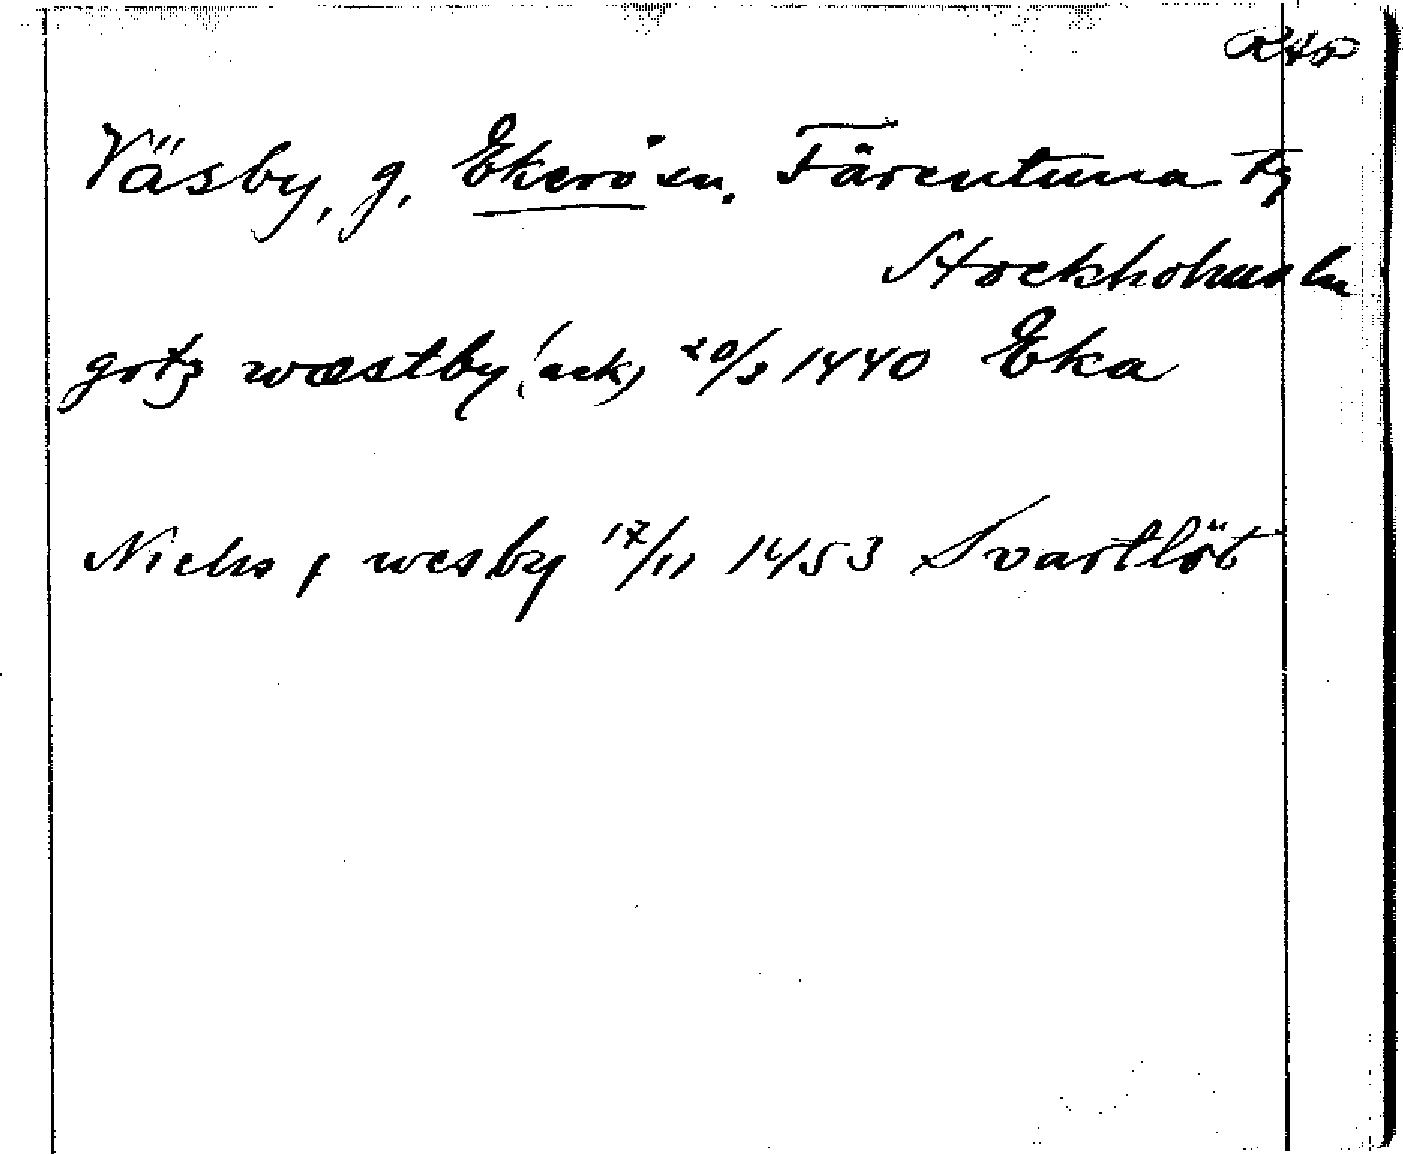 RAp
Väsby, g. Ekerö sn. Färentuna tg
Stockholms ln
gotz wæstby (ack) 20/3 1440 Eka
Niclis j wesby 17/11 1453 Svartlöt